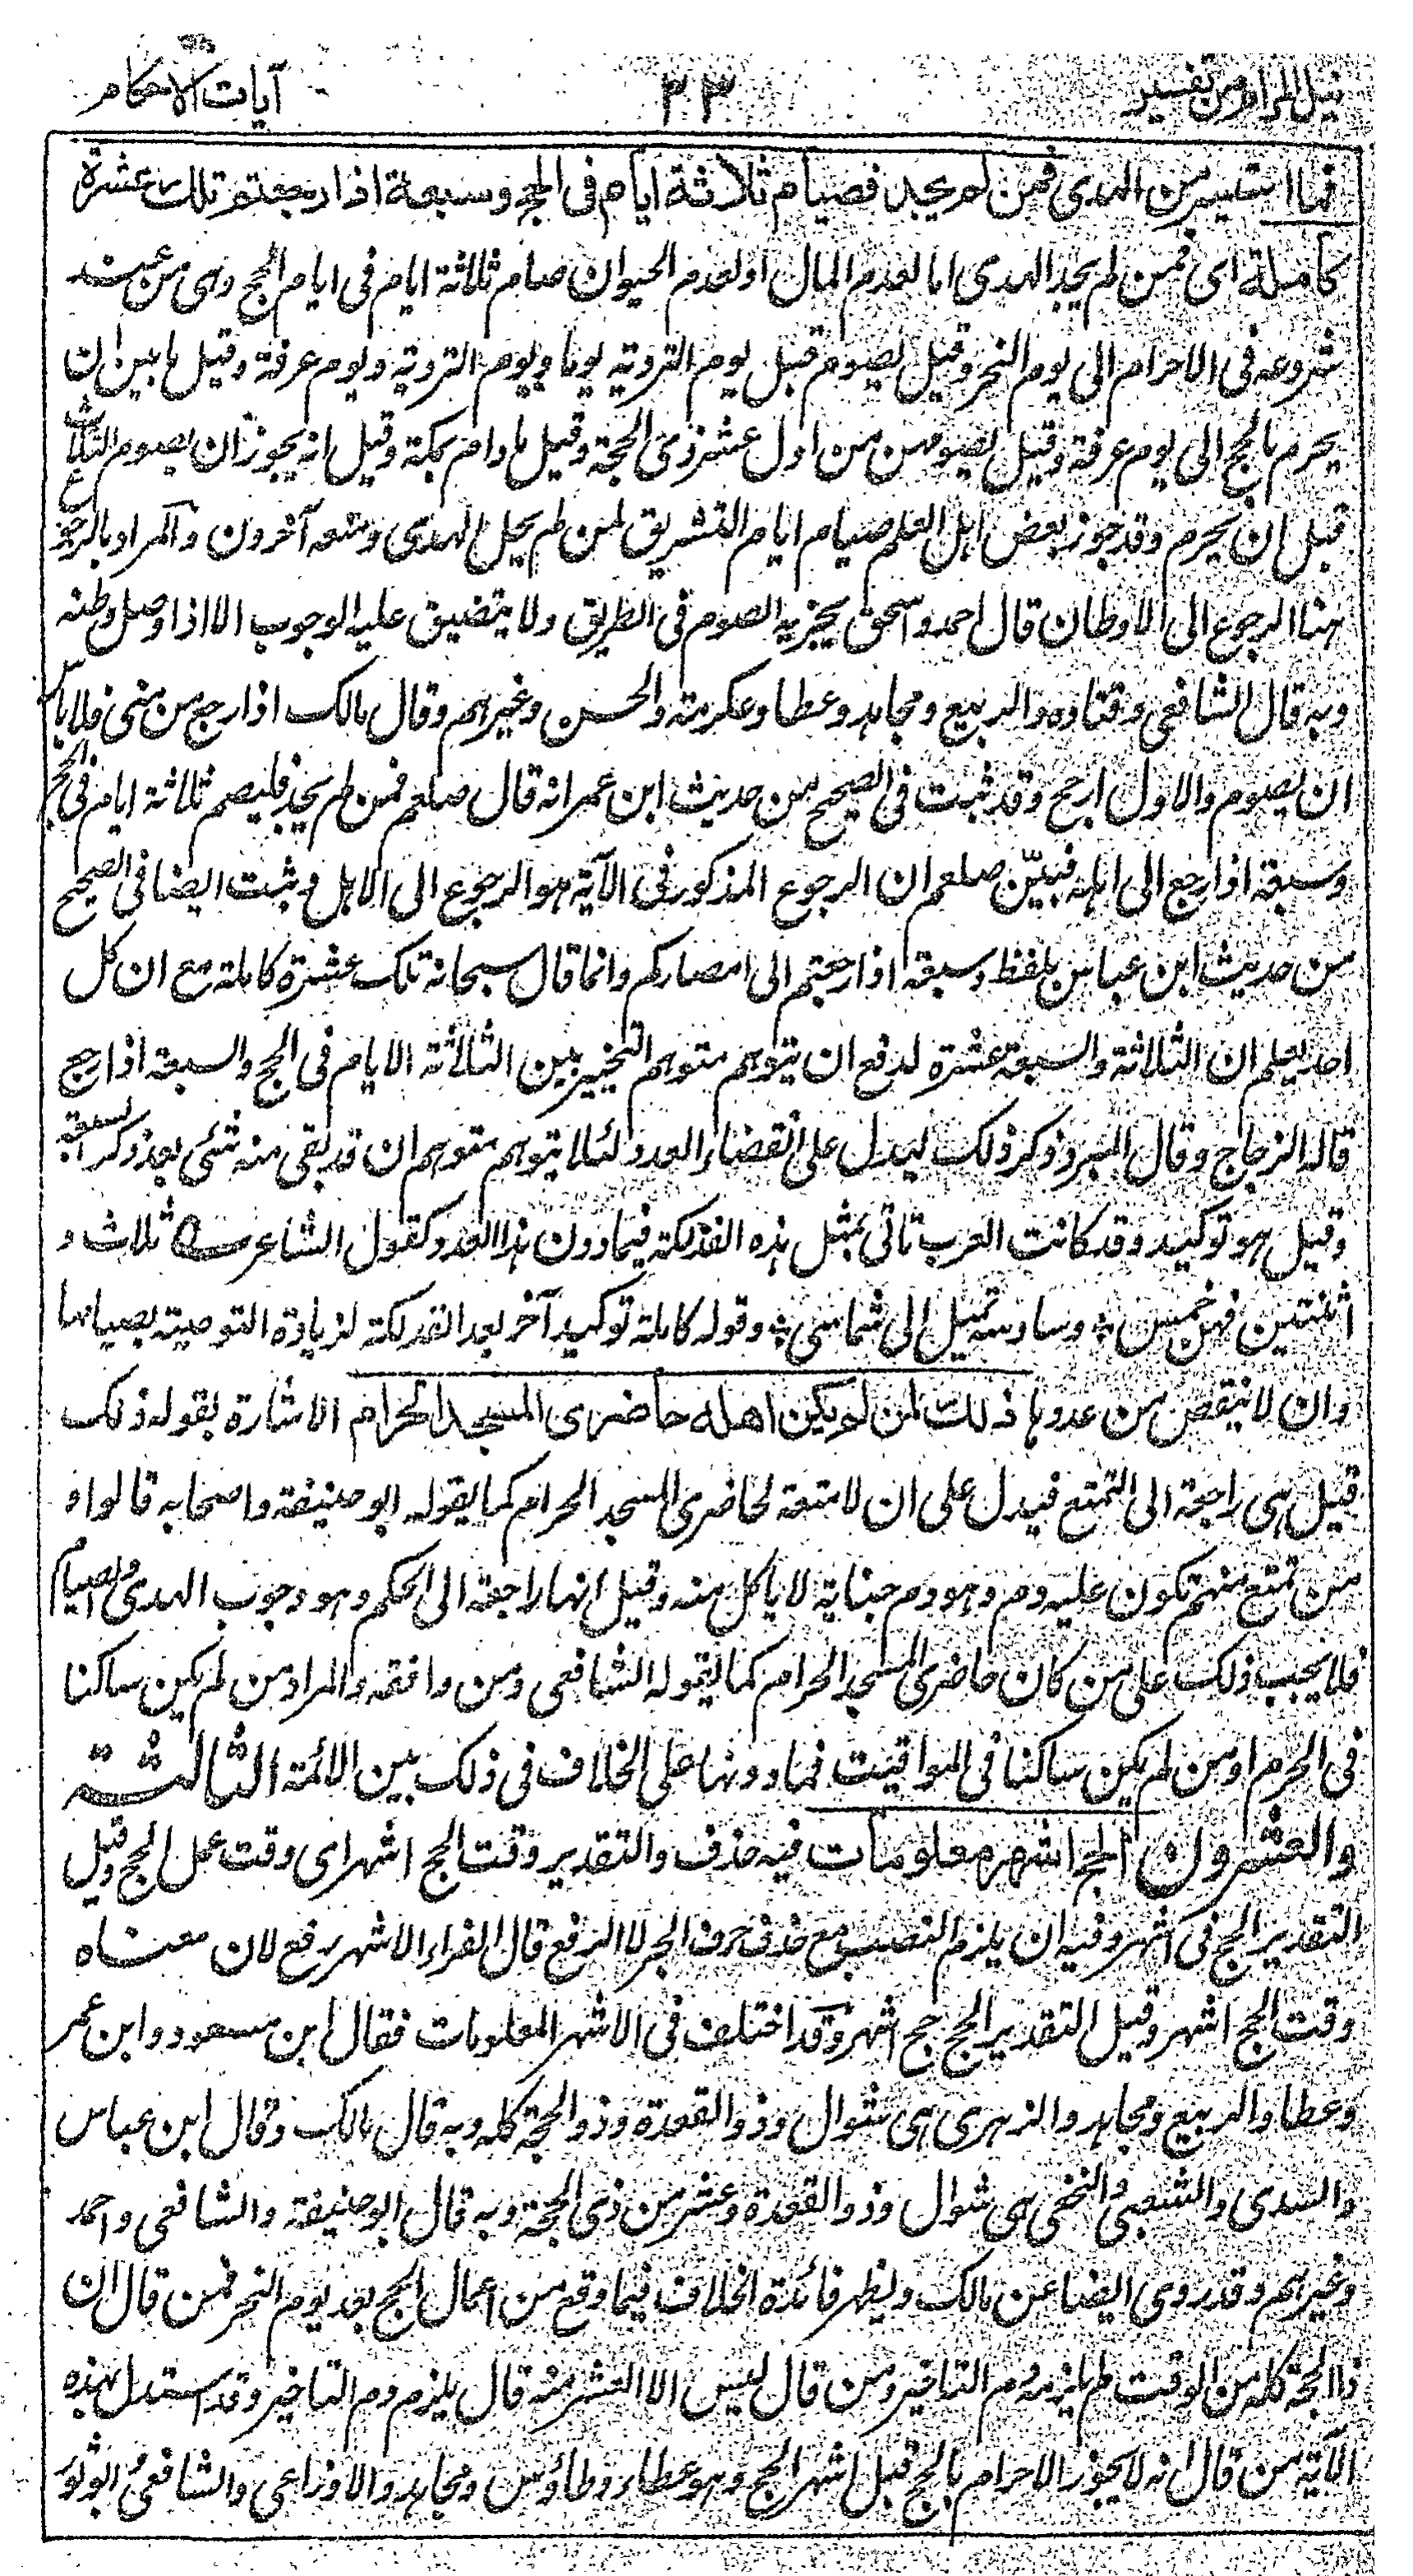 نيل المرام من تفسير ٣٣ آيات الاحكام
فما استيسر من الهدى فمن لم يجد فصيام ثلاثة ايام فى الحج وسبعة اذا رجعتم تلك عشرة
كاملة اى فمن لم يجد الهدى اما لعدم المال او لعدم الحيوان صام ثلاثة ايام فى ايام الحج وهى من عند
شروعه فى الاحرام الى يوم النحر وقيل يصوم قبل يوم التروية يوما ويوم التروية ويوم عرفة وقيل ما بين ان
يحرم بالحج الى يوم عرفة وقيل يصومهن من اول عشر ذى الحجة وقيل ما دام بمكة وقيل انه يجوز ان يصوم الثلاث
قبل ان يحرم وقد جوز بعض اهل العلم صيام ايام التشريق لمن لم يجل الهدى ومنعه آخرون والمراد بالرجوع
هنا الرجوع الى الاوطان قال احمد واسحق يجزيه الصوم فى الطريق ولا يتضيق عليه الوجوب الا اذا وصل وطنه
وبه قال الشافعى وقتادة والربيع ومجاهد وعطا وعكرمة والحسن وغيرهم وقال مالك اذا رجع من منى فلا باس
ان يصوم والاول ارجح وقد ثبت فى الصحيح من حديث ابن عمر انه قال صلعم فمن لم يجد فليصم ثلاثة ايام فى الحج
وسبعة اذا رجع الى اهله فبيّن صلعم ان الرجوع المذكور فى الآية هو الرجوع الى الاهل وثبت ايضا فى الصحيح
من حديث ابن عباس بلفظ وسبعة اذا رجعتم الى امصاركم وانما قال سبحانه تلك عشرة كاملة مع ان كل
احد يعلم ان الثلاثة والسبعة عشرة لدفع ان يتوهم متوهم التخيير بين الثلاثة الايام فى الحج والسبعة اذا رجع
قاله الزجاج وقال المبرد ذكر ذلك ليدل على انقضاء العدد ولئلا يتوهم متوهم ان قد بقى منه شئى بعد ذكر السبعة
وقيل هو توكيد وقد كانت العرب تاتى بمثل هذه الفذلكة فيما دون هذا العدد كقول الشاعر ؎ ثلاث و
اثنتين فهن خمس ؛ وسادسة تميل الى شماسى ؛ وقوله كاملة توكيد آخر بعد الفذلكة لزيادة التوصية بصيامها
وان لا ينقص من عددها ذلك لمن لم يكن اهله حاضرى المسجد الحرام الاشارة بقوله ذلك
قيل هى راجعة الى التمتع فيدل على ان لا متعة لحاضرى المسجد الحرام كما يقوله ابو حنيفة واصحابه قالوا و
من تمتع منهم تكون عليه دم وهو دم جناية لا ياكل منه وقيل انها راجعة الى الحكم وهو وجوب الهدى والصيام
فلا يجب ذلك على من كان حاضرى المسجد الحرام كما يقوله الشافعى ومن وافقه والمراد من لم يكن ساكنا
فى الحرم او من لم يكن ساكنا فى المواقيت فما دونها على الخلاف فى ذلك بين الائمة الثالثة
والعشرون الحج اشهر معلومات فيه حذف والتقدير وقت الحج اشهر اى وقت عمل الحج وقيل
التقدير الحج فى اشهر وفيه ان يلزم النصب مع حذف حرف الجر لا الرفع قال الفراء الاشهر رفع لان معناه
وقت الحج اشهر وقيل التقدير الحج حج اشهر وقد اختلف فى الاشهر المعلومات فقال ابن مسعود وابن عمر
وعطا والربيع ومجاهد والزهرى هى شوال وذو القعدة وذو الحجة كله وبه قال مالك وقال ابن عباس
والسدى والشعبى والنخعى هى شوال وذو القعدة وعشر من ذى الحجة وبه قال ابو حنيفة والشافعى واحمد
وغيرهم وقد روى ايضا عن مالك ويظهر فائدة الخلاف فيما وقع من اعمال الحج بعد يوم النحر فمن قال ان
ذا الحجة كله من الوقت لم يلزمه دم التاخير ومن قال ليس الا العشر منه قال يلزم دم التاخير وقد استدل بهذه
الآية من قال انه لا يجوز الاحرام بالحج قبل اشهر الحج وهو عطاء وطاؤس ومجاهد والاوزاعى والشافعى وابو ثور